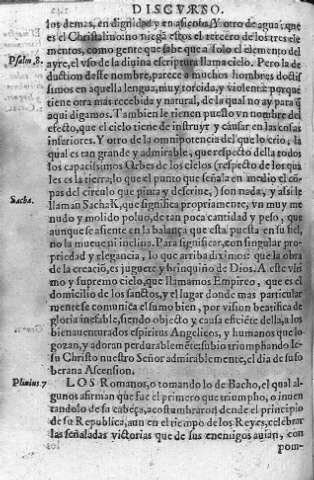 DISCVRSO.
los demas, en dignidad y en assiento. Y otro de agua; que
es el Christalino: no niega estos el tercero de los tres ele-
mentos, como gente que sabe que a solo el elemento del
Psalm. 8. ayre, el vso de la diuina escriptura llama cielo. Pero la de
duction deste nombre, parece a muchos hombres doctis
simos en aquella lengua, muy torcida, y violenta: porque
tiene otra mas recebida y natural, de la qual no ay para q̃
aqui digamos. Tambien le tienen puesto vn nombre del
efecto, que el cielo tiene de instruyr y causar en las cosas
inferiores. Y otro de la omnipotencia del que lo crio, la
qual es tan grande y admirable, que respecto della todos
los capacissimos Orbes de los cielos (respecto de los qua
les es la tierra, lo que el punto que señala en medio el cõ-
pas del circulo que pinta y descriue,) son nada, y assi le
Sacha. llaman SachaK, que significa propriamente, vn muy me
nudo y molido poluo, de tan poca cantidad y peso, que
aunque se assiente en la balança que esta puesta en su fiel,
no la mueue ni inclina. Para significar, con singular pro-
priedad y elegancia, lo que arriba diximos: que la obra
de la creaciõ, es juguete y brinquiño de Dios. A este vlti
mo y supremo cielo, que llamamos Empireo, que es el
domicilio de los sanctos, y el lugar donde mas particular
mente se comunica el sumo bien, por vision beatifica de
gloria inefable, siendo objecto y causa efficiẽte della, a los
bienauenturados espiritus Angelicos, y humanos que lo
gozan, y adoran perdurablemẽte: subio triumphando Ie-
su Christo nuestro Señor admirablemente, el dia de su so
berana Ascension.
Plinius. 7 LOS Romanos, o tomando lo de Bacho, el qual al-
gunos afirman que fue el primero que triumpho, o inuen
tandolo de su cabeça, acostumbraron desde el principio
de su Republica, aun en el tiempo de los Reyes, celebrar
las señaladas victorias que de sus enemigos auian, con
pom-